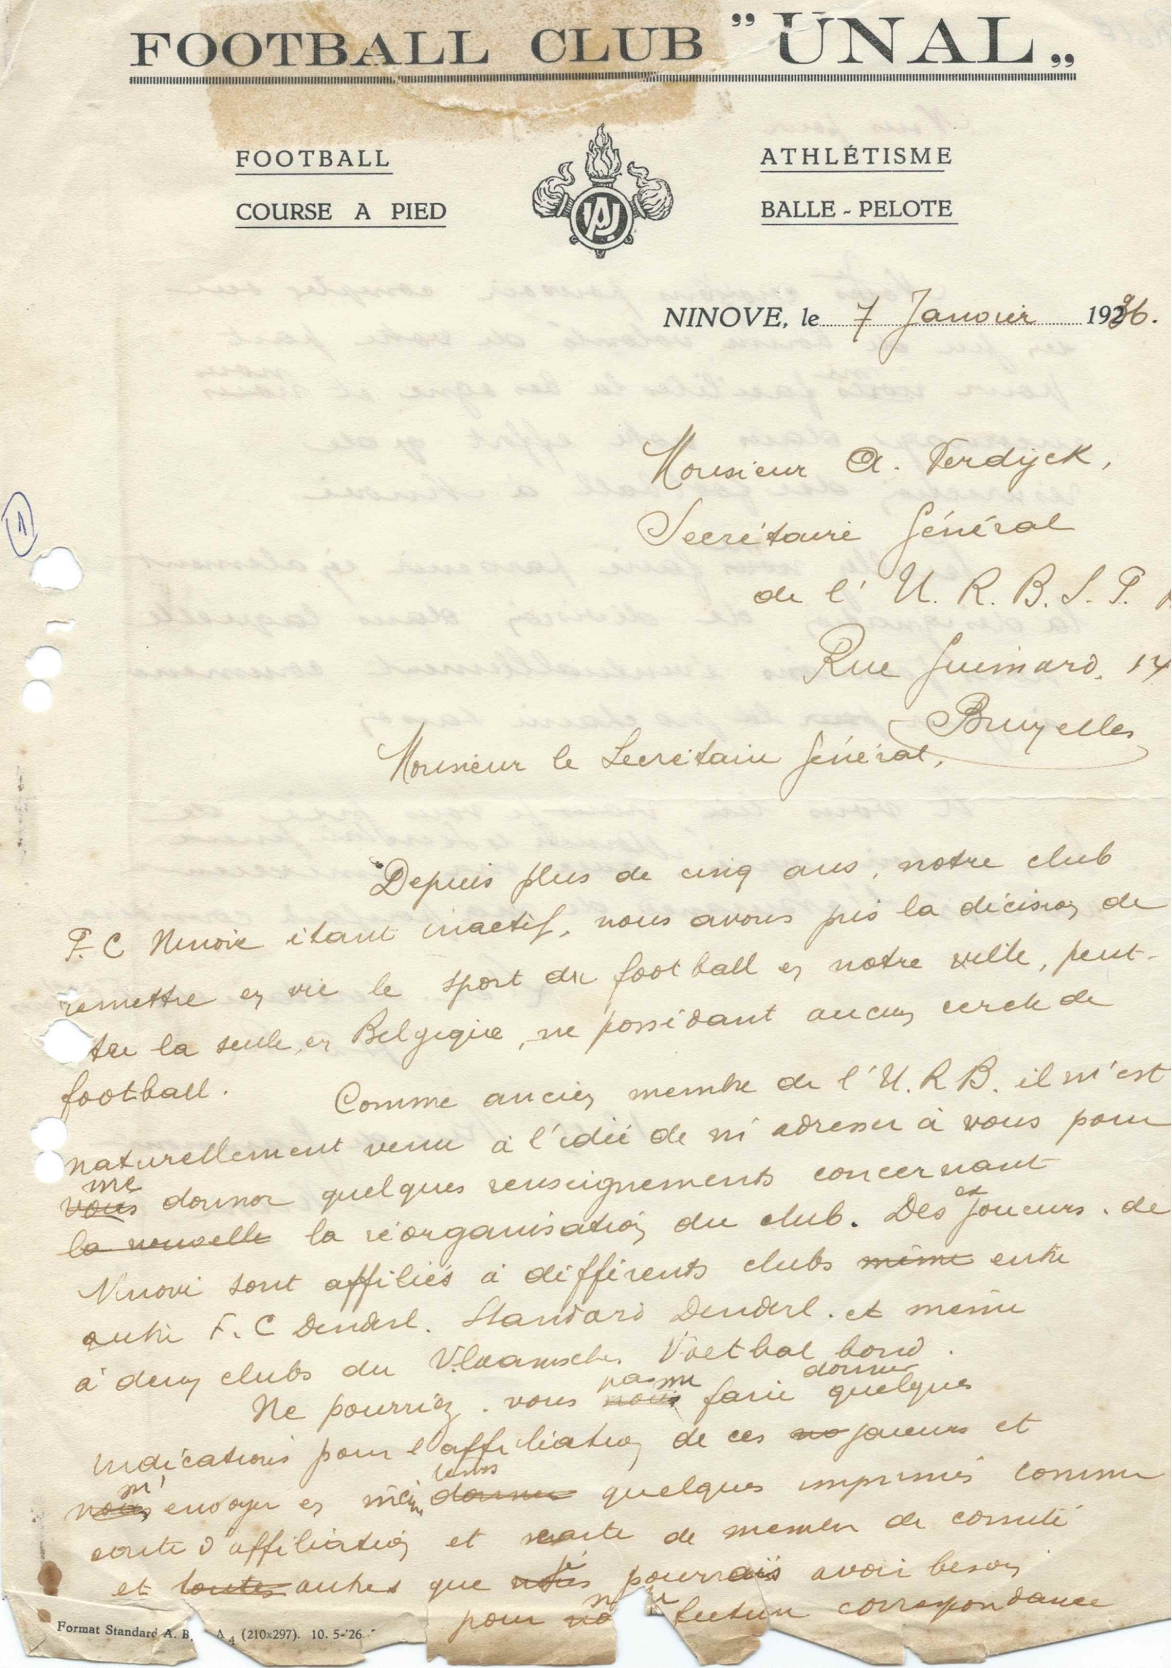 FOOTBALL CLUB "UNAL"
FOOTBALL
COURSE A PIED
ATHLÉTISME
BALLE - PELOTE
NINOVE, le 7 Janvier 1936.
1
Monsieur A. Verdyck,
Secrétaire Général
de l'U. R. B. S. F.
Rue Guimard, 14
Bruxelles
Monsieur le Secrétaire Général,
Depuis plus de cinq ans, notre club
F.C Ninove étant inactif, nous avons pris la décision de
remettre en vie le sport du football en notre ville, peut-
tre la seule, en Belgique, ne possédant aucun cercle de
football.
Comme ancien membre de l'U.R.B. il m'est
naturellement venu à l'idée de m'adresser à vous pour
me
vous donner quelques renseignements concernant
la nouvelle la réorganisation du club. Des joueurs de
Ninove sont affiliés à différents clubs même entre
autre F.C Denderl. Standard Denderl. et même
à deux clubs du Vlaamsche Voetbal bond.
Ne pourriez-vous nous faire quelques
pas me donner
indications pour l'affiliation de ces no joueurs et
nous envoyer en même donner quelques imprimés comme
m' temps
carte d'affiliation et carte de membre de comité
et toutes autres que nous pourrais avoir besoin
je
pour correspondance
Format Standard A. B. A4 (210x297). 10. 5-'26